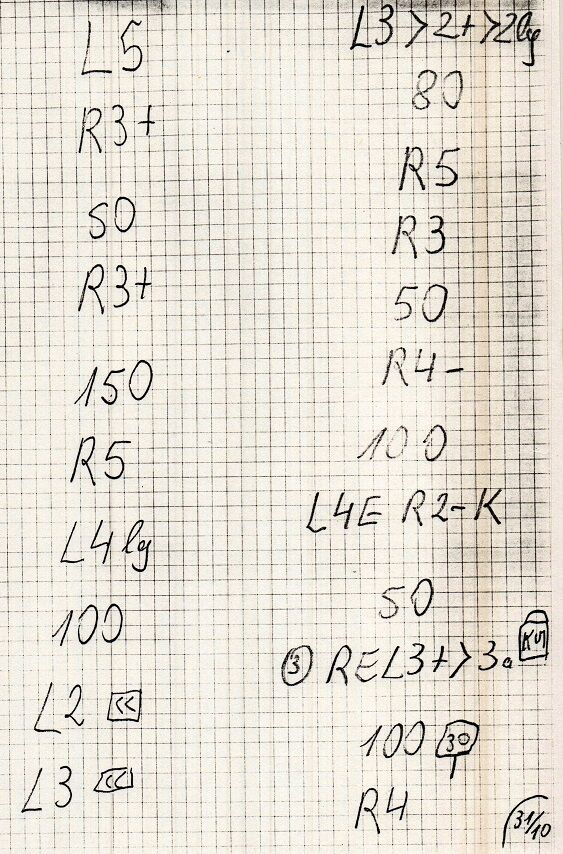 L5
R3+
50
R3+
150
R5
L4 lg
100
L2 <<
L3 <<
L3 > 2+ > 2lg
80
R5
R3
50
R4-
100
L4E R2-K
50
3 REL3+ > 3. K5
100 30
R4
31/10